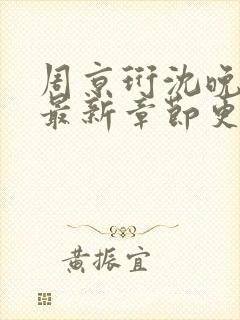 周京衍沈晚
最新章節更
黄振宜